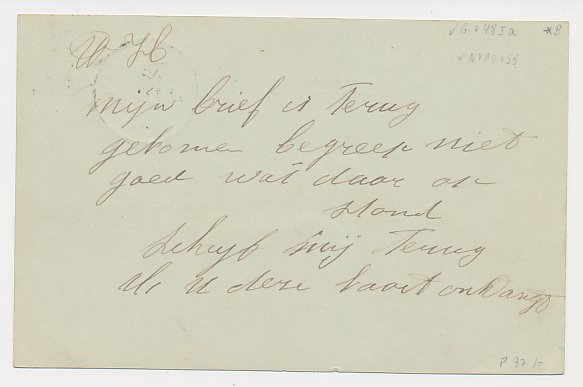 W H
mijn brief is Terug
gekomen begreep niet
goed wat daar op
stond
schryf mij Terug
Als U deze kaart ontvangt
P 97 1-